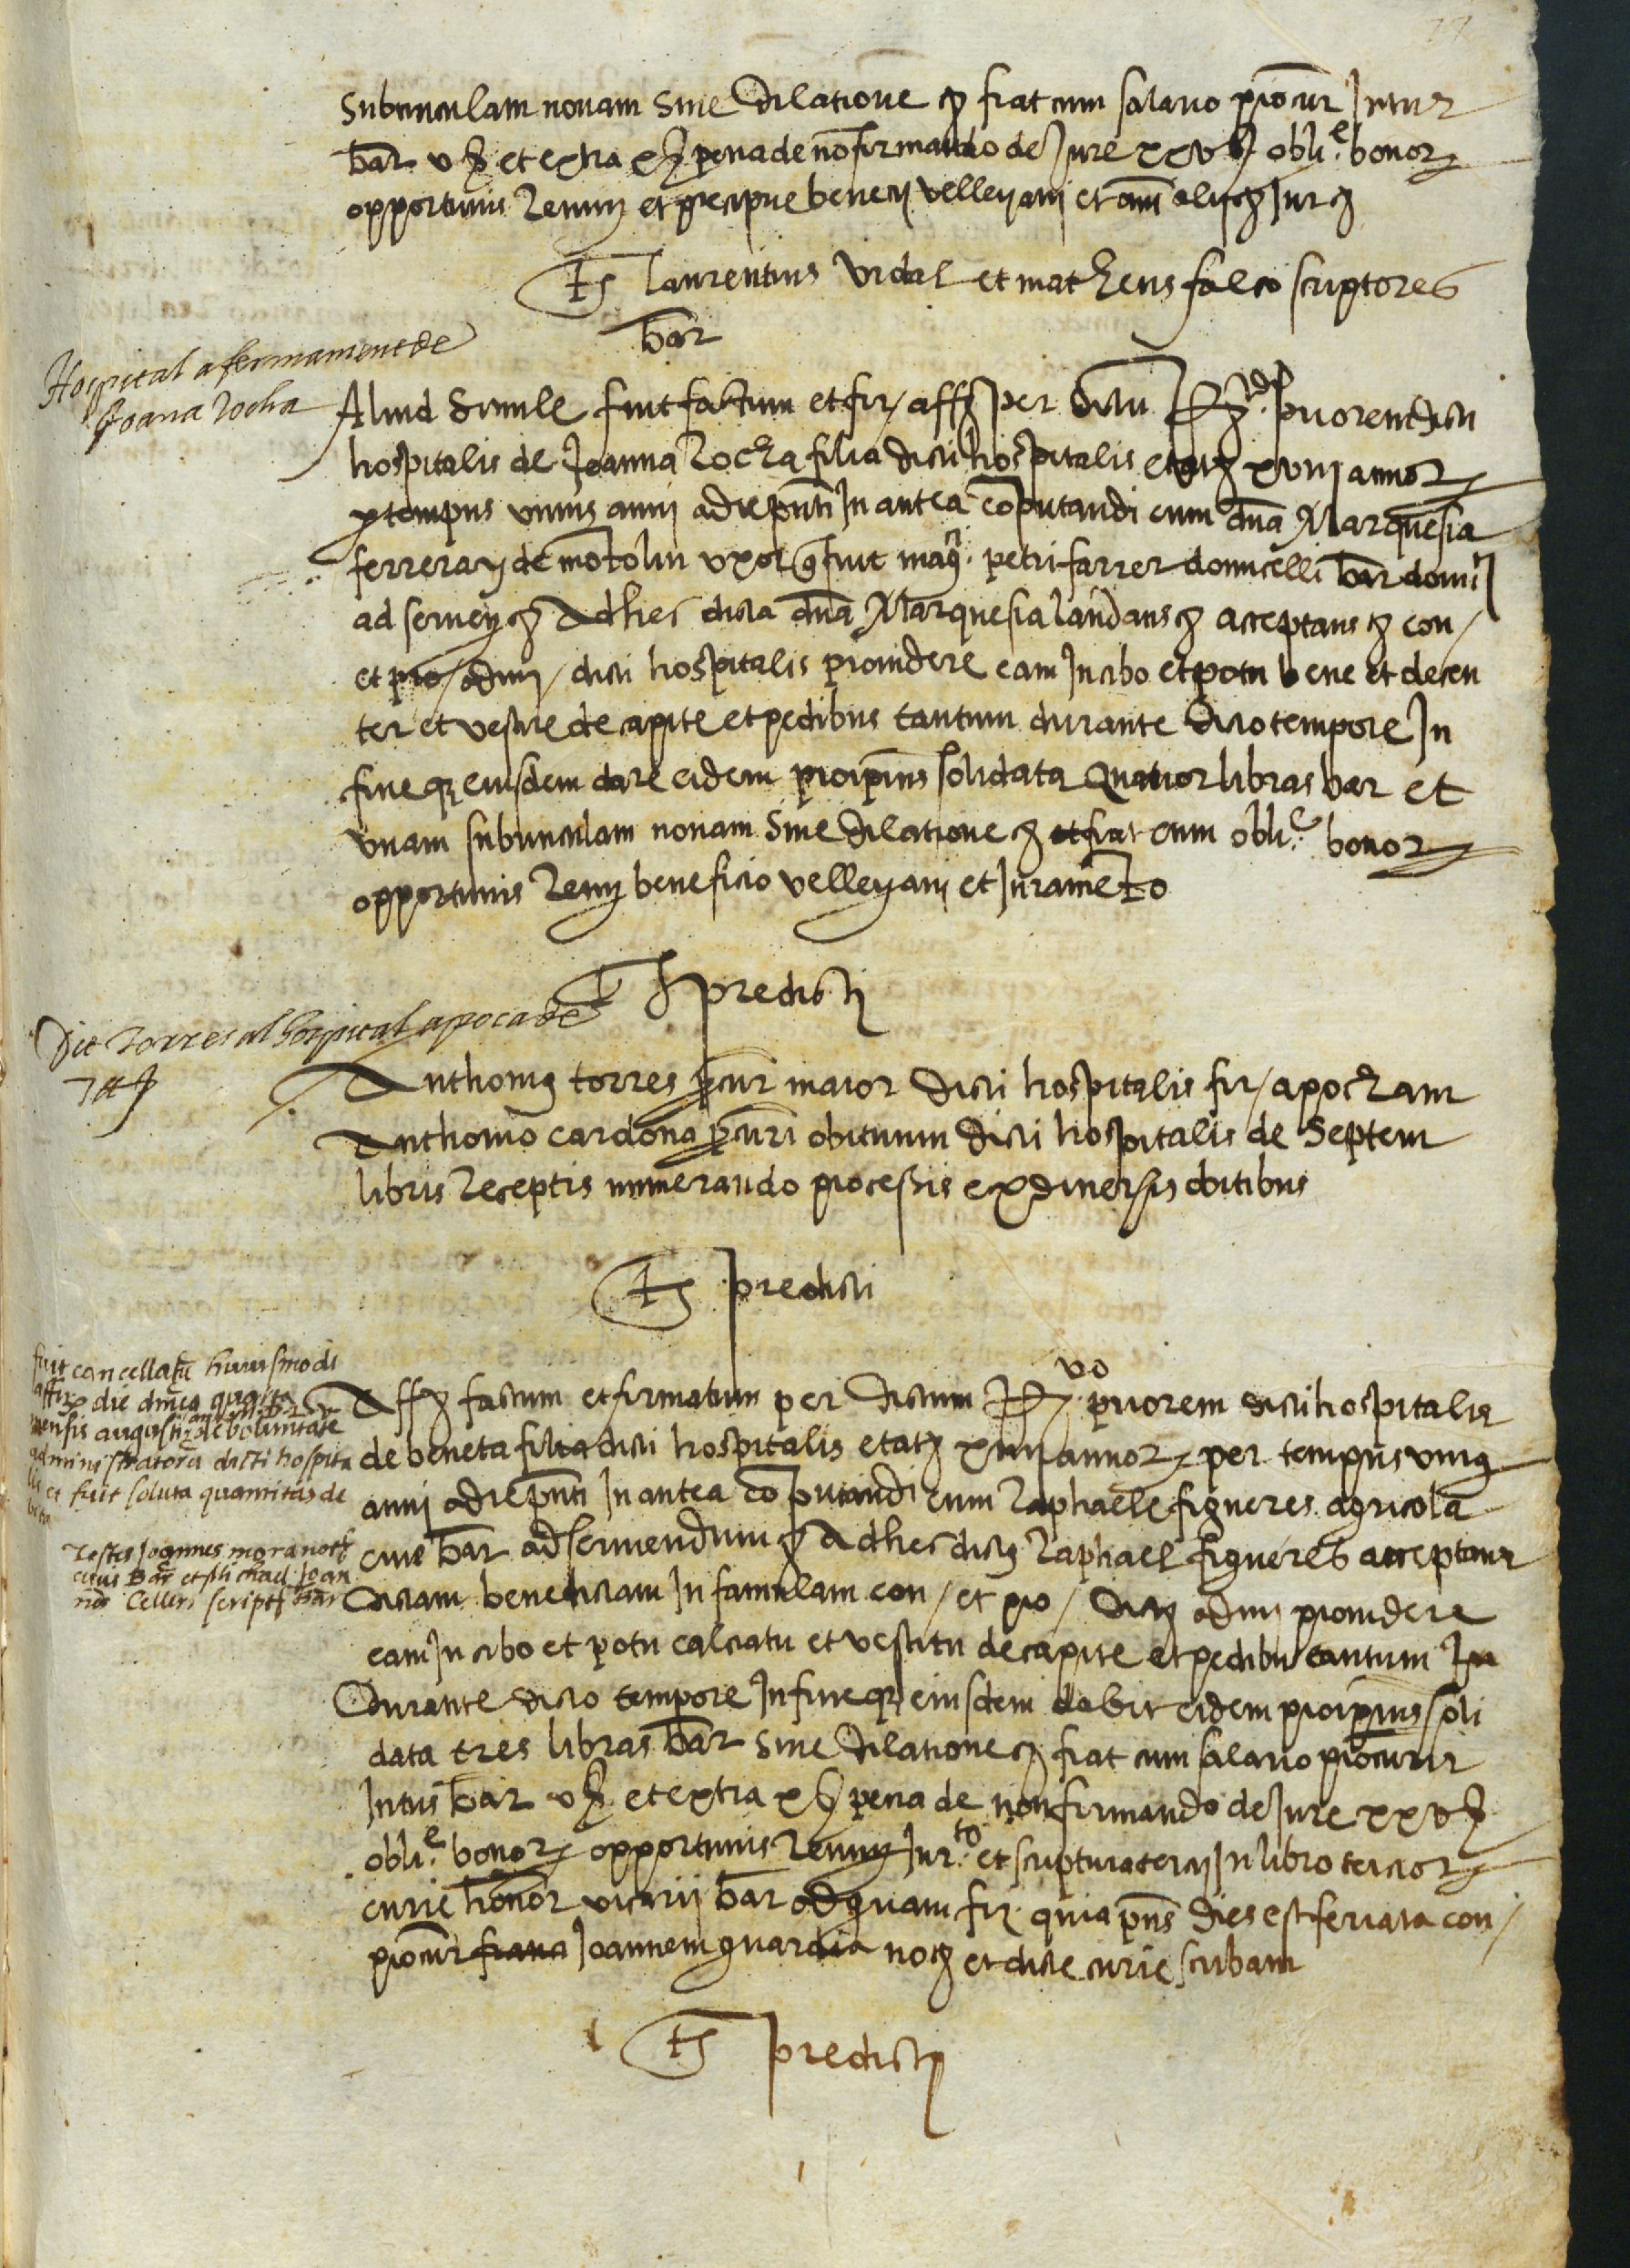 Subunculam novam sine dilatione etc fiat cum salario procur Intus
bar v ss et extra x ss pena de no firmando de Jure xxv ss obli.e bonor
opportunis Renun et precipue beneci velleyani et omni alijs Jur etc
Ts laurentius vidal et matheus falco scriptores
bar
Hospital afermament de
Joana rocha
Aliud simile fuit factum et fir/ aff per dictu R. priorem dicti
hospitalis de Joanna rocha filia dicti hospitalis etatis xviij annor
p tempus unius anni a die pnti In antea coputandi cum dna Marquesia
ferrera y de motoliu uxor q fuit mag. petri farrer domicelli bar domi
ad serviend etc Ad hec dicta dna Marquesia laudans etc acceptans etc con/
et pro/ admi/ dicti hospitalis providere eam In cibo et potu bene et decen
ter et vestire de capite et pedibus tantum durante dicto tempore In
fine q eiusdem dare eidem pro ipsius solidata Quatuor libras bar et
unam subunculam novam sine dilatione etc et fiat cum obli.e bonor
opportunis Renun beneficio velleyani et Jurameto
Ts predicti
Dit Torres al hospital apoca de
7 ll
Anthonius torres pcur maior dicti hospitalis fir/ apocham
Anthonio cardona pcuri obituum dicti hospitalis de septem
libris Receptis numerando processis ex diversis obitibus
Ts predicti
fuit cancellatu huiusmodi
affir die dnica quarta
mensis augusti de voluntate
administratora dicti hospita
lis et fuit soluta quantitas de
bita
Testes Joannes mora not
civis Bar et Michael Joan
nes Celleri script bar
Aff factum et firmatum per dictum R.vo priorem dicti hospitalis
de beneta filia dicti hospitalis etatis xiiij annor per tempus unius
anni a die pnti In antea coputandi cum Raphaele figueres agricola
cive bar ad serviendum etc Ad hec dictus Raphael figueres acceptans
dictam benedictam In famulam con/ et pro/ dictis admi providere
eam In cibo et potu calciatu et vestitu de capite et pedibus tantum In
durante dicto tempore In fine q eiusdem dabit eidem pro ipsius soli
data tres libras bar sine dilatione etc fiat cum salario procur
Intus bar v ss et extra x ss pena de non firmando de Jure xxv ss
obli.e bonor opportunis Renun Jur.to et scriptura tercij In libro tercior
curie honor vicarij bar ad quam fir quia pns dies est feriata con/
procur frana Joannem guardia not et dicte curie scribam
Ts predicti